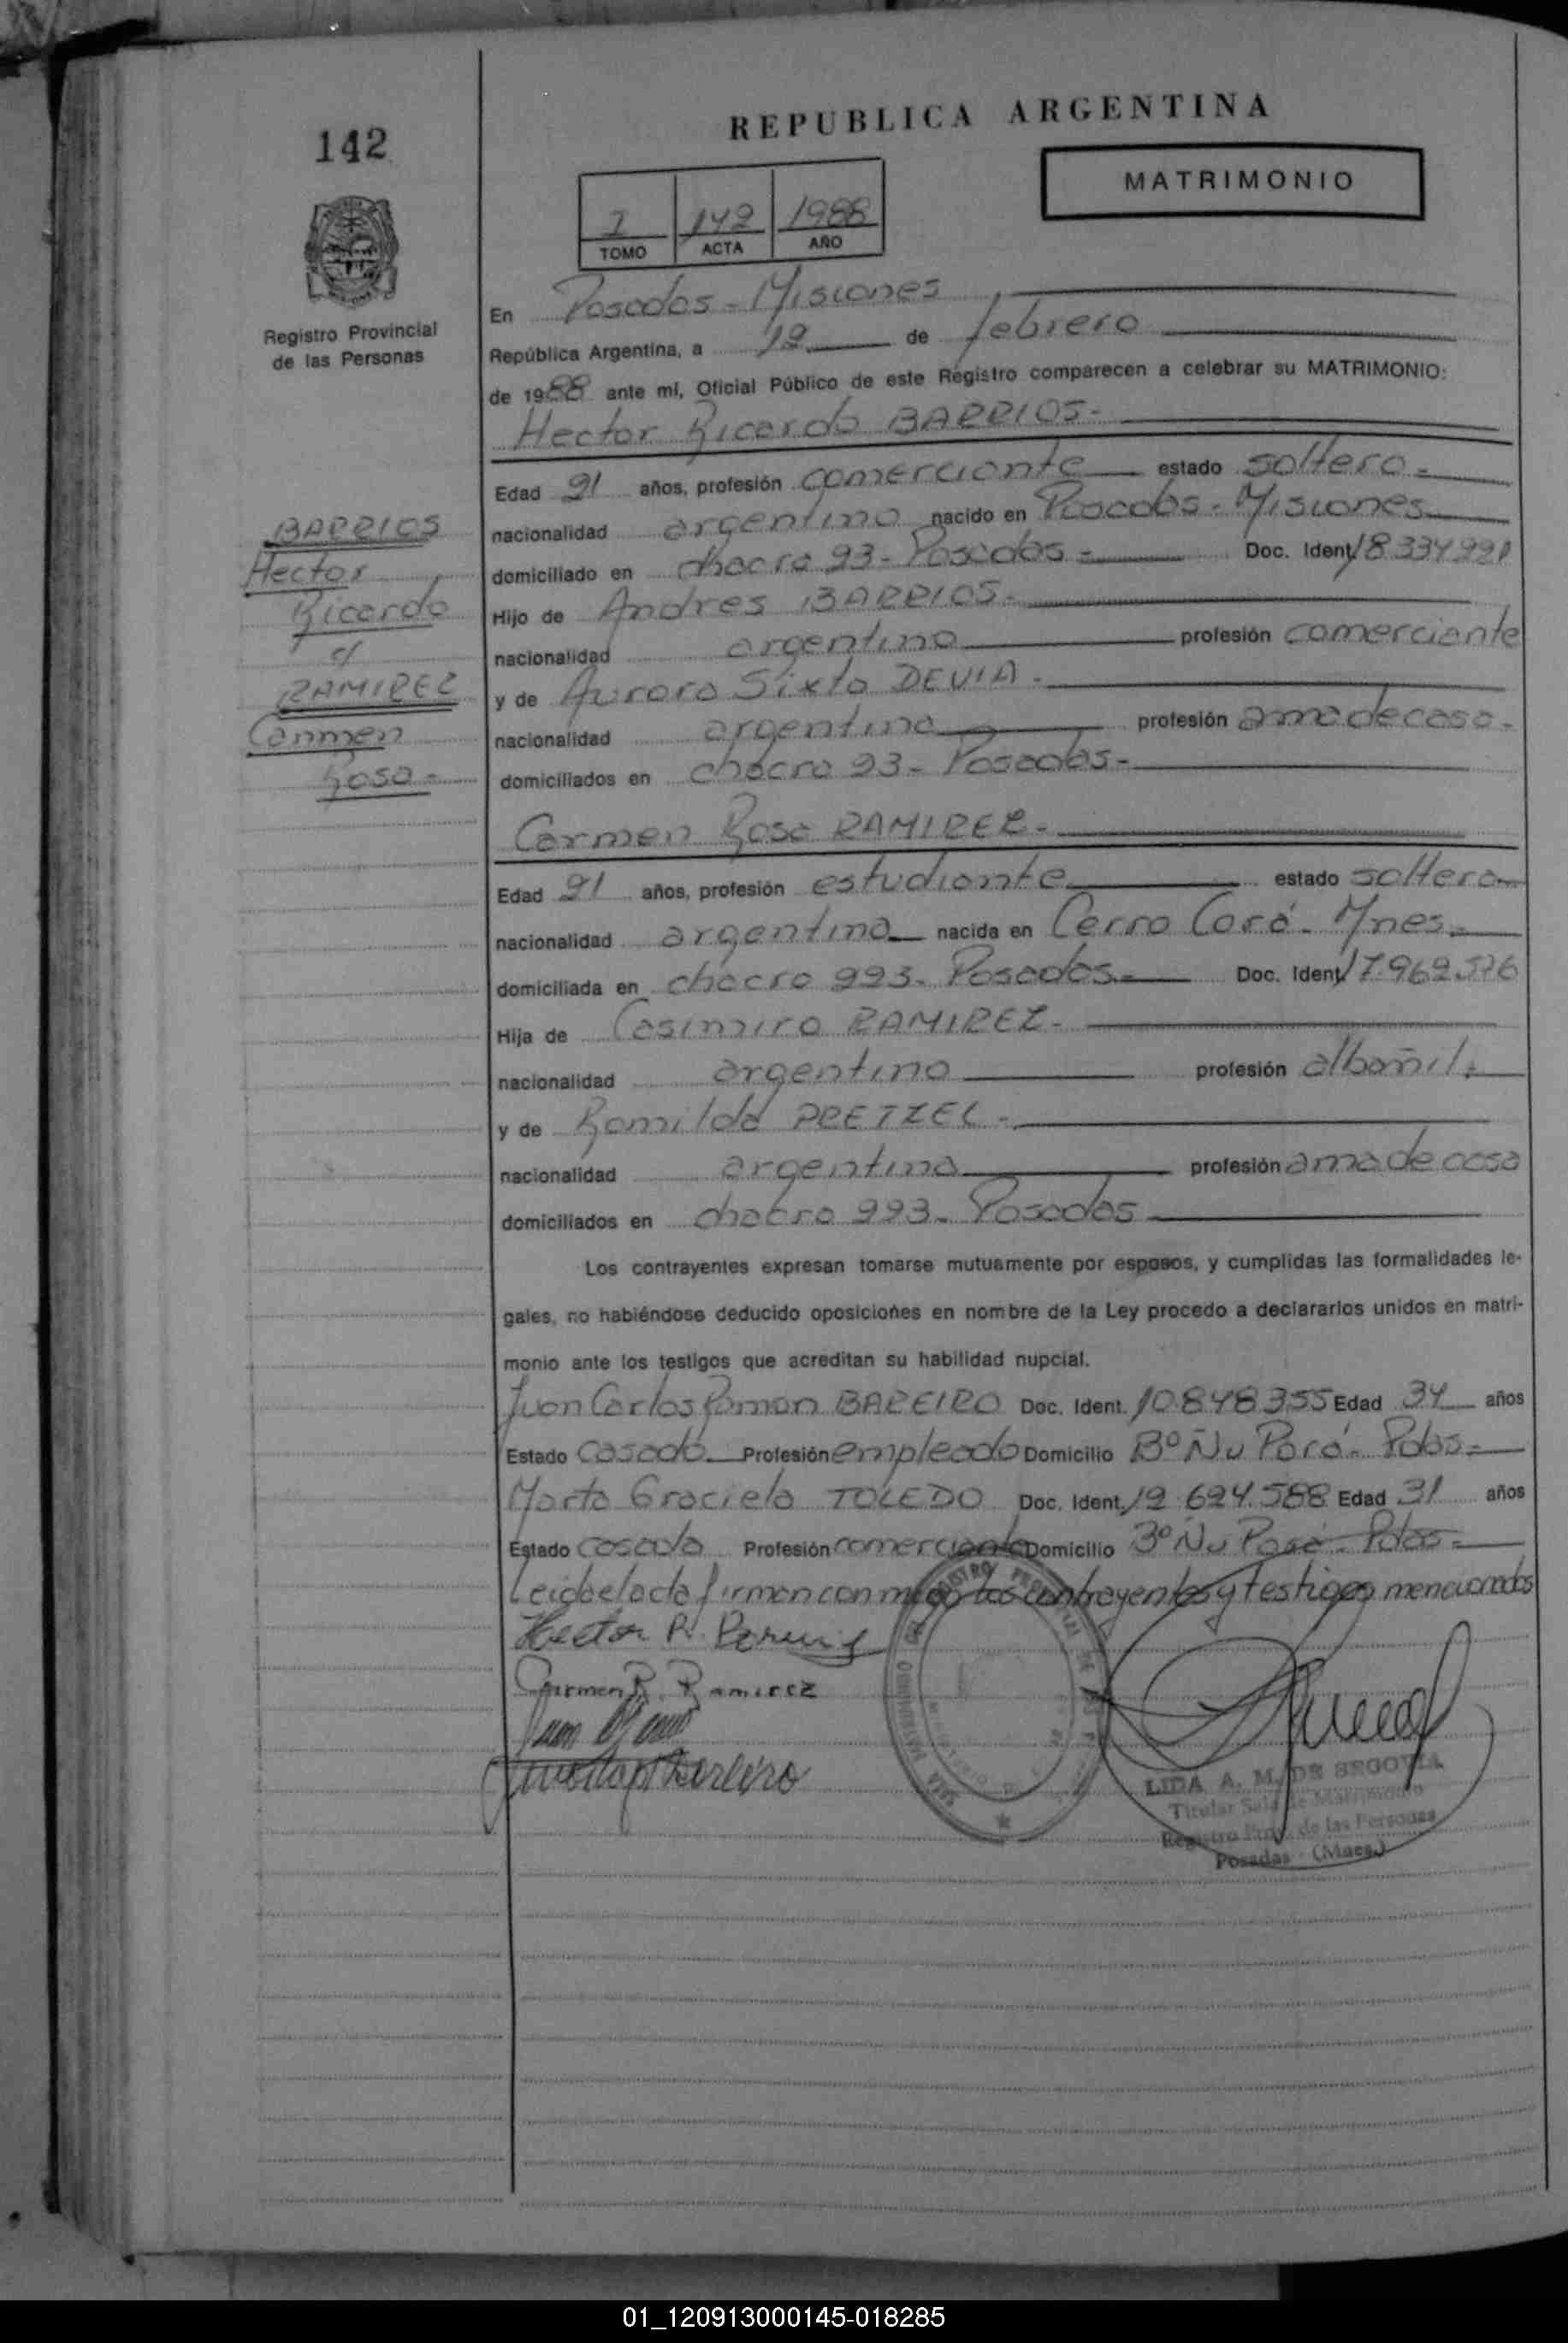 142
REPUBLICA ARGENTINA
MATRIMONIO
I 142 1988
TOMO ACTA AÑO
Registro Provincial
de las Personas
En Posadas - Misiones
República Argentina, a 12 de febrero
de 1988 ante mí, Oficial Público de este Registro comparecen a celebrar su MATRIMONIO:
Hector Ricardo BARRIOS-
Edad 21 años, profesión comerciante estado soltero-
nacionalidad argentino nacido en Posadas - Misiones
domiciliado en chacra 93- Posadas - Doc. Ident. 18.334.221
Hijo de Andres BARRIOS-
nacionalidad argentino profesión comerciante
y de Aurora Sixta DEVIA -
nacionalidad argentina profesión ama de casa-
domiciliados en chacra 93- Posadas-
BARRIOS
Hector
Ricardo
c/
RAMIREZ
Carmen
Rosa-
Carmen Rosa RAMIREZ-
Edad 21 años, profesión estudiante estado soltera
nacionalidad argentina nacida en Cerro Corá- Mnes.
domiciliada en chacra 223- Posadas- Doc. Ident. 17.962.576
Hija de Casimiro RAMIREZ-
nacionalidad argentino profesión albañil.
y de Romilda PRETZEL-
nacionalidad argentina profesión ama de casa
domiciliados en chacra 223- Posadas
Los contrayentes expresan tomarse mutuamente por esposos, y cumplidas las formalidades le-
gales, no habiéndose deducido oposiciones en nombre de la Ley procedo a declararlos unidos en matri-
monio ante los testigos que acreditan su habilidad nupcial.
Juan Carlos Ramon BAREIRO Doc. Ident. 10.848.355 Edad 34 años
Estado casado Profesión empleado Domicilio Bº Ñu Porá- Pdas-
Marta Graciela TOLEDO Doc. Ident. 12.624.588 Edad 31 años
Estado casada Profesión comerciante Domicilio Bº Ñu Porá- Pdas-
Leida el acta firman conmigo los contrayentes y testigos mencionados
Hector R. Barrios
Carmen R. Ramirez
LIDA A. M. DE SEGOVIA
Titular Sala de Matrimonio
Registro Prov. de las Personas
Posadas - (Mnes.)
01_120913000145-018285